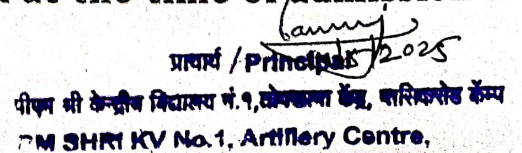 at the time of
प्राचार्य / Principal
/2025
पीएम श्री केन्द्रीय विद्यालय नं.१,तोपखाना केंद्र, नासिकरोड कॅम्प
PM SHRI KV No.1, Artillery Centre,